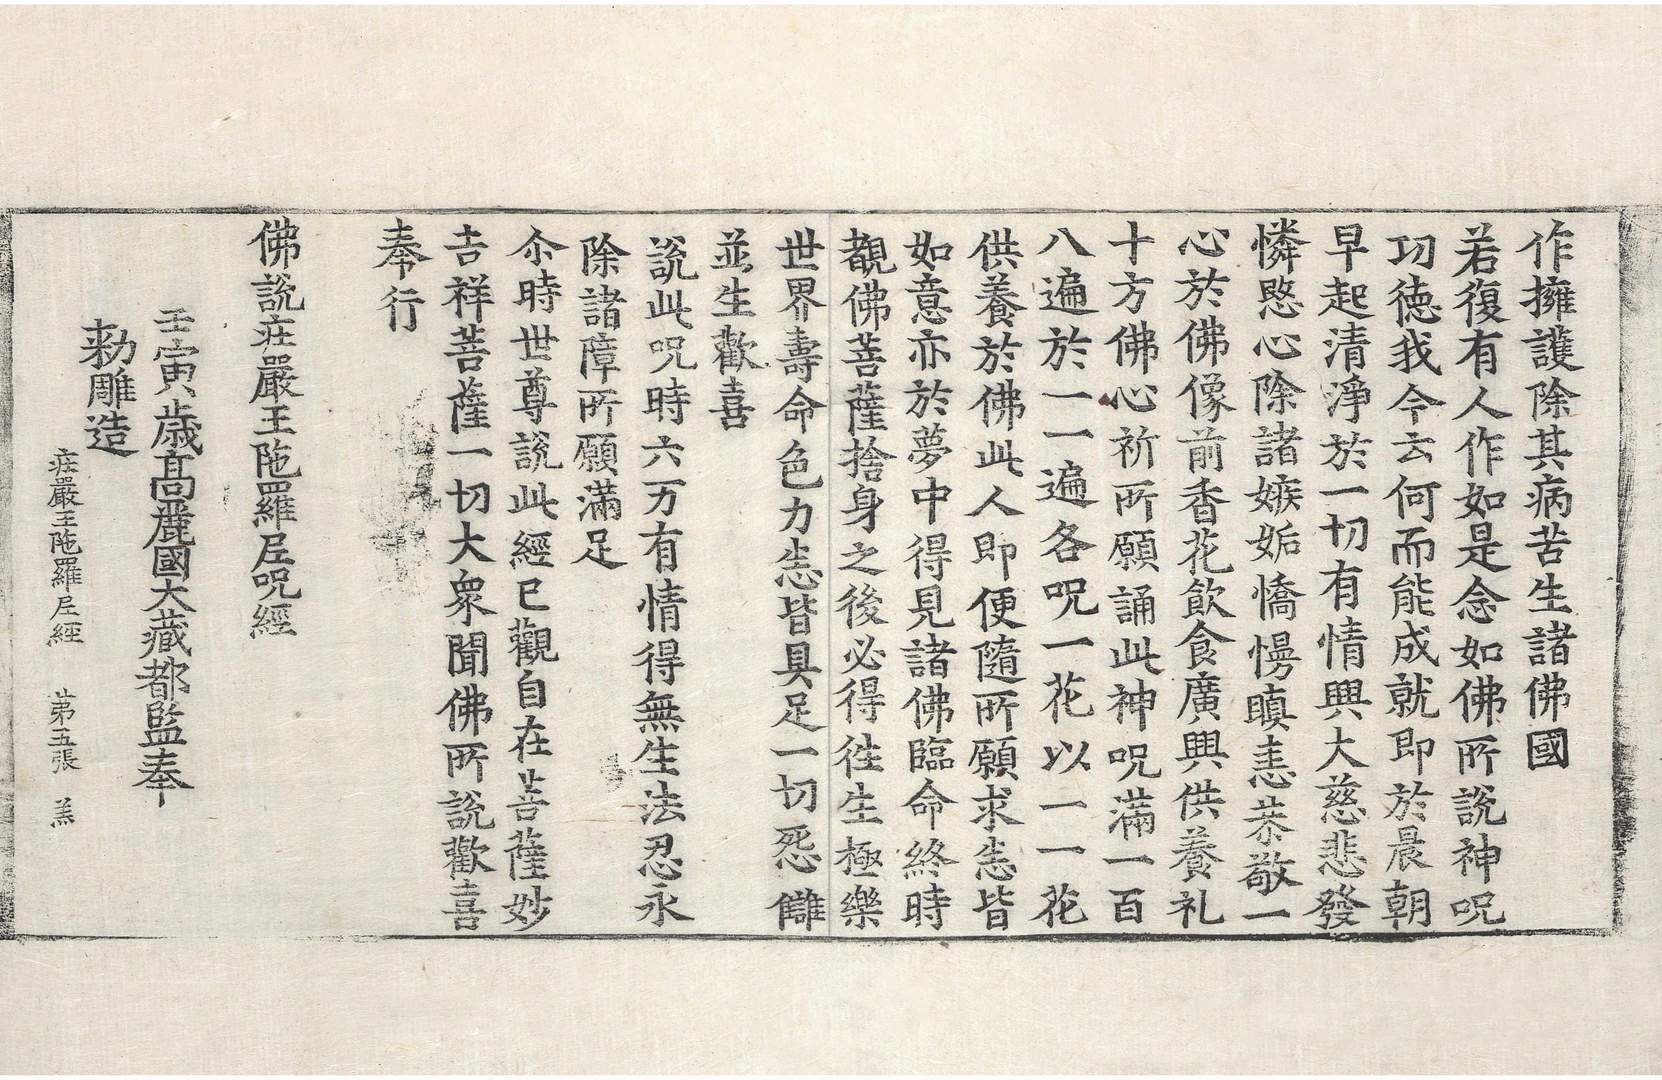 作擁護除其病苦生諸佛國
若復有人作如是念如佛所說神呪
功德我今云何而能成就即於晨朝
早起清淨於一切有情興大慈悲發
憐愍心除諸嫉妬憍慢瞋恚恭敬一
心於佛像前香花飮食廣興供養礼
十方佛心祈所願誦此神呪滿一百
八遍於一一遍各呪一花以一一花
供養於佛此人即便隨所願求悉皆
如意亦於夢中得見諸佛臨命終時
覩佛菩薩捨身之後必得徃生極樂
世界壽命色力悉皆具足一切怨讎
並生歡喜
說此呪時六万有情得無生法忍永
除諸障所願滿足
尒時世尊說此經已觀自在菩薩妙
吉祥菩薩一切大衆聞佛所說歡喜
奉行
佛說莊嚴王陁羅尼呪經
壬寅歲高麗國大藏都監奉
勑雕造
莊嚴王陁羅尼經 苐五張 羔